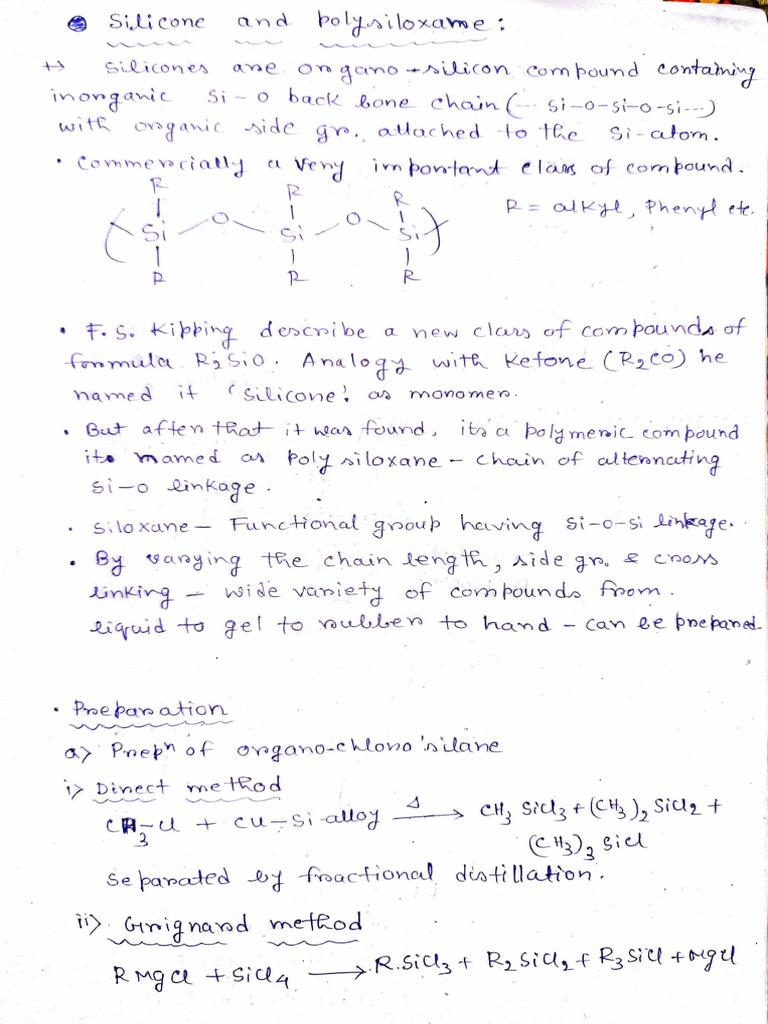 Silicone and polysiloxane:
Silicones are organo-silicon compound containing
inorganic Si-O back bone chain (... Si-O-Si-O-Si...)
with organic side gr. attached to the Si-atom.
• Commercially a very important class of compound.
R R R
( Si - O - Si - O - Si )
R R R
R = alkyl, Phenyl etc.
• F.S. Kipping describe a new class of compounds of
formula R₂SiO. Analogy with Ketone (R₂CO) he
named it 'silicone' as monomer.
• But after that it was found, its a polymeric compound
its named as poly siloxane - chain of alternating
Si-O linkage.
• Siloxane - Functional group having Si-O-Si linkage.
• By varying the chain length, side gr. & cross
linking - wide variety of compounds from.
liquid to gel to rubber to hard - can be prepared.
• Preparation
a) Prepⁿ of organo-chloro silane
i) Direct method
CH₃-Cl + Cu-Si-alloy —Δ→ CH₃ SiCl₃ + (CH₃)₂ SiCl₂ +
(CH₃)₃ SiCl
separated by fractional distillation.
ii) Grignard method
RMgCl + SiCl₄ → R.SiCl₃ + R₂SiCl₂ + R₃SiCl + MgCl